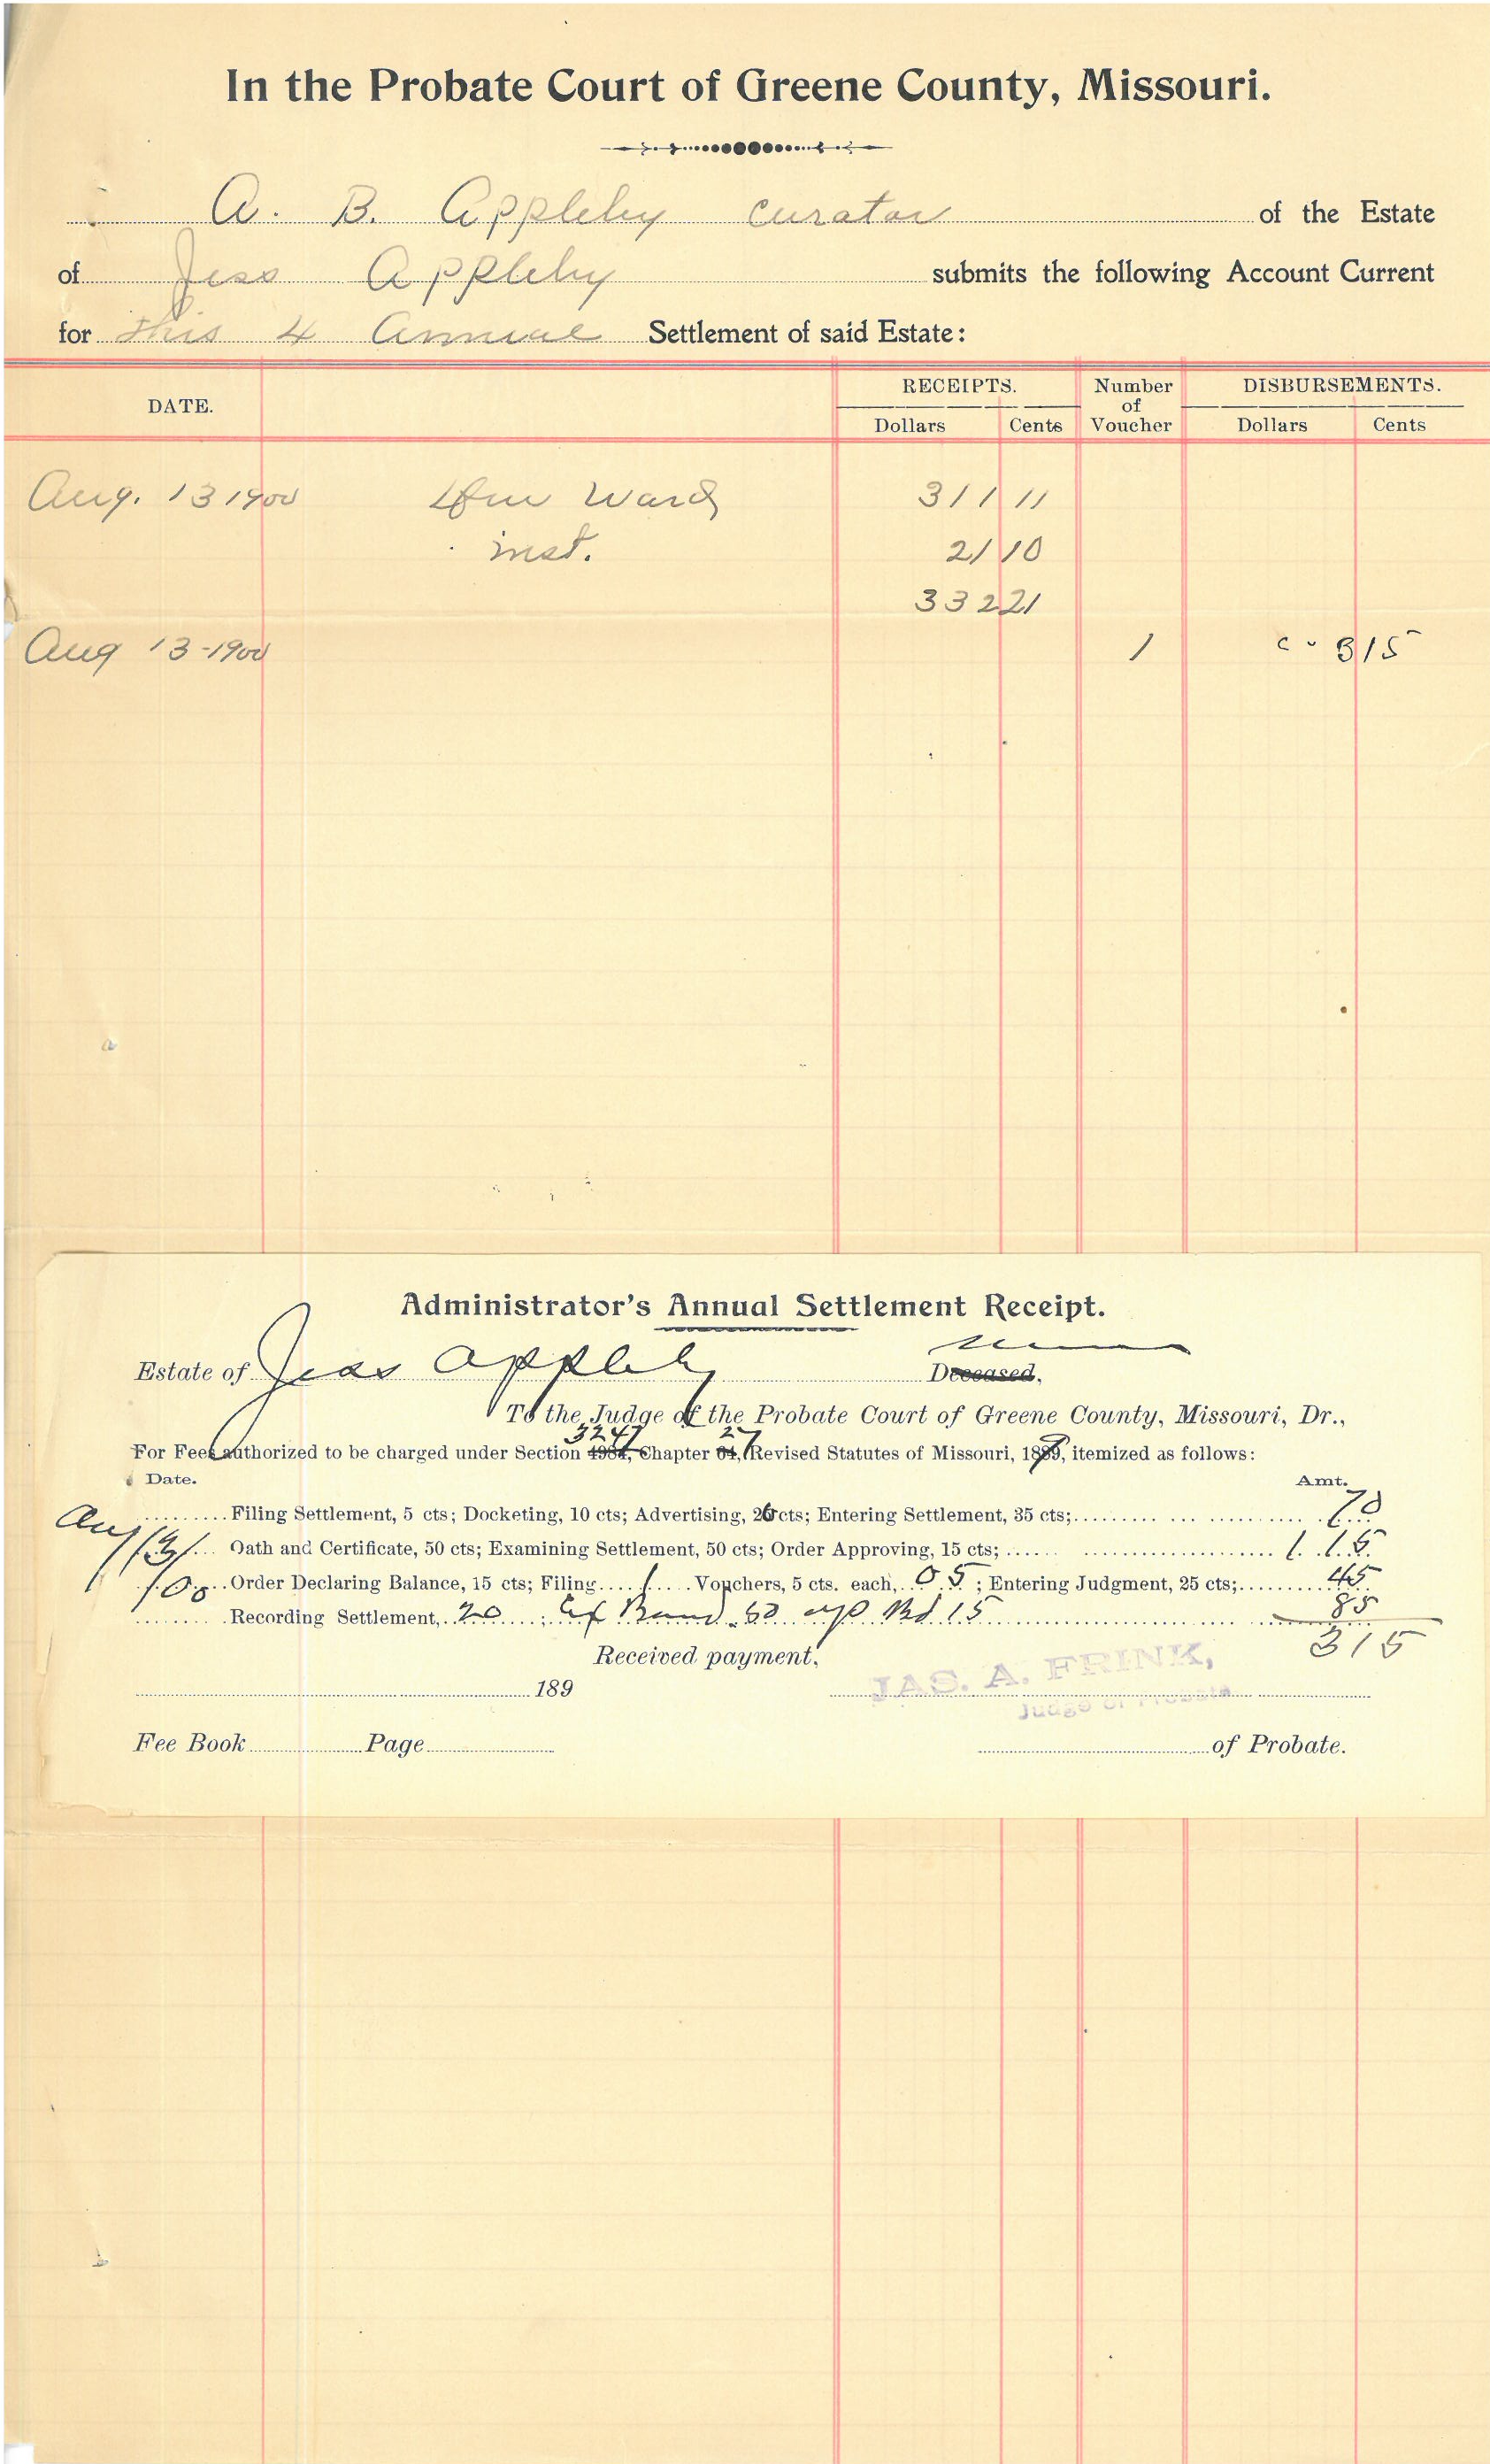 In the Probate Court of Greene County, Missouri.
A. B. Appleby curator of the Estate
of Jess Appleby submits the following Account Current
for this 4 Annual Settlement of said Estate:
DATE. RECEIPTS. Number of Voucher DISBURSEMENTS.
Dollars Cents Dollars Cents
Aug. 13 1900 Ward 311 11
inst. 21 10
332 21
Aug 13-1900 1 3 15
Administrator's Annual Settlement Receipt.
Estate of Jess Appleby Deceased,
To the Judge of the Probate Court of Greene County, Missouri, Dr.,
3247 27
For Fees authorized to be charged under Section 4984, Chapter 64, Revised Statutes of Missouri, 1889, itemized as follows:
Date. Amt.
Filing Settlement, 5 cts; Docketing, 10 cts; Advertising, 20 cts; Entering Settlement, 35 cts; 70
Aug 13/ Oath and Certificate, 50 cts; Examining Settlement, 50 cts; Order Approving, 15 cts; 1.15
100 Order Declaring Balance, 15 cts; Filing 1 Vouchers, 5 cts. each, 05; Entering Judgment, 25 cts; 45
Recording Settlement, 20 Bond 50 Bd 15 85
Received payment, 315
JAS. A. FRINK,
189
Judge of Probate
Fee Book Page of Probate.